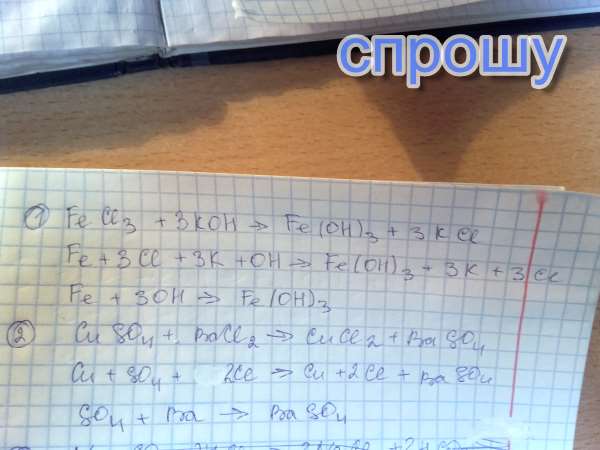 спрошу
① FeCl₃ + 3KOH → Fe(OH)₃ + 3KCl
Fe + 3Cl + 3K + OH → Fe(OH)₃ + 3K + 3Cl
Fe + 3OH → Fe(OH)₃
② CuSO₄ + BaCl₂ → CuCl₂ + BaSO₄
Cu + SO₄ + 2Cl → Cu + 2Cl + BaSO₄
SO₄ + Ba → BaSO₄